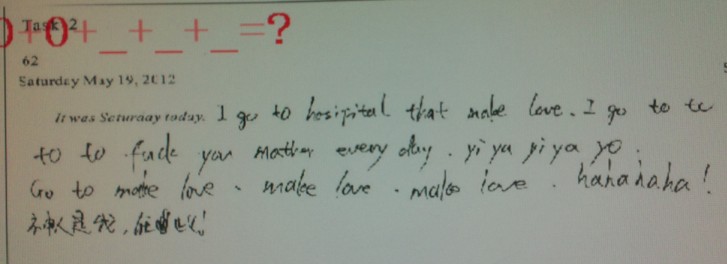 Task 2
0+0+_+_+_=?
62
Saturday May 19, 2012
It was Saturday today. I go to hosipital that make love. I go to to
to to fuck you mather every day. yi ya yi ya yo.
Go to make love. make love. make love. hahahaha!
神人是我,